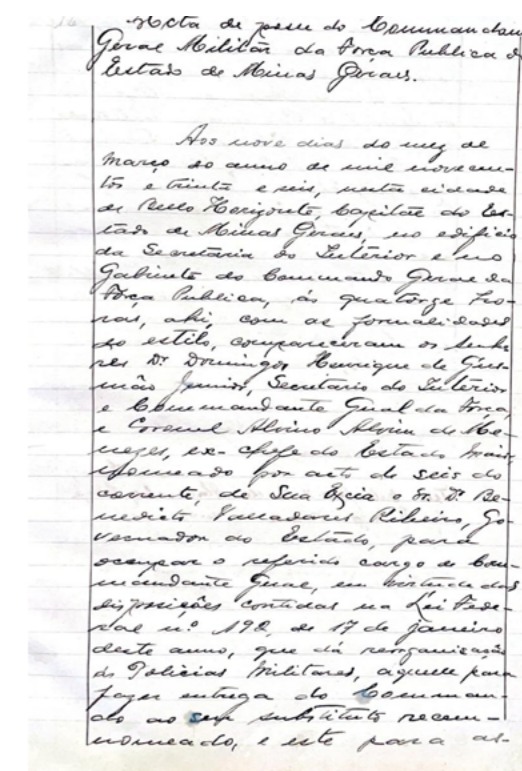 Acta de posse do Commandan
Geral Militar da Força Publica d
Estado de Minas Geraes.
Aos nove dias do mez de
março do anno de mil novecen-
tos e trinta e seis, nesta cidade
de Bello Horizonte, Capital do Es-
tado de Minas Geraes, no edificio
da Secretaria do Interior e no
Gabinete do Commando Geral da
Força Publica, ás quatorze ho-
ras, ahi, com as formalidades
do estilo, compareceram os senho-
res Dr. Domingos Henrique de Gus-
mão Junior, Secretario do Interior
e Commandante Geral da Força,
e Coronel Alvino Alvim de Me-
nezes, ex-chefe do Estado Maior,
nomeado por acto de seis do
corrente, de Sua Excia o Sr. Dr. Be-
nedicto Valladares Ribeiro, Go-
vernador do Estado, para
occupar o referido cargo de Com-
mandante Geral, em virtude das
disposições contidas na Lei Fede-
ral nº 192, de 17 de janeiro
deste anno, que dá reorganisação
ás Policias Militares, aquelle para
fazer entrega do Comman-
do ao seu substituto recem-
nomeado, e este para as-